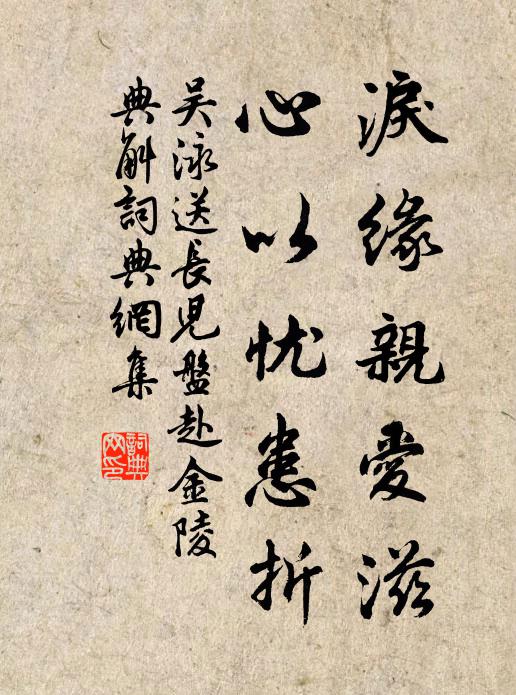 淚緣親愛滋
心以忧患折
吴泳送長児盤赴金陵
典斛詞典網集
詞典网印